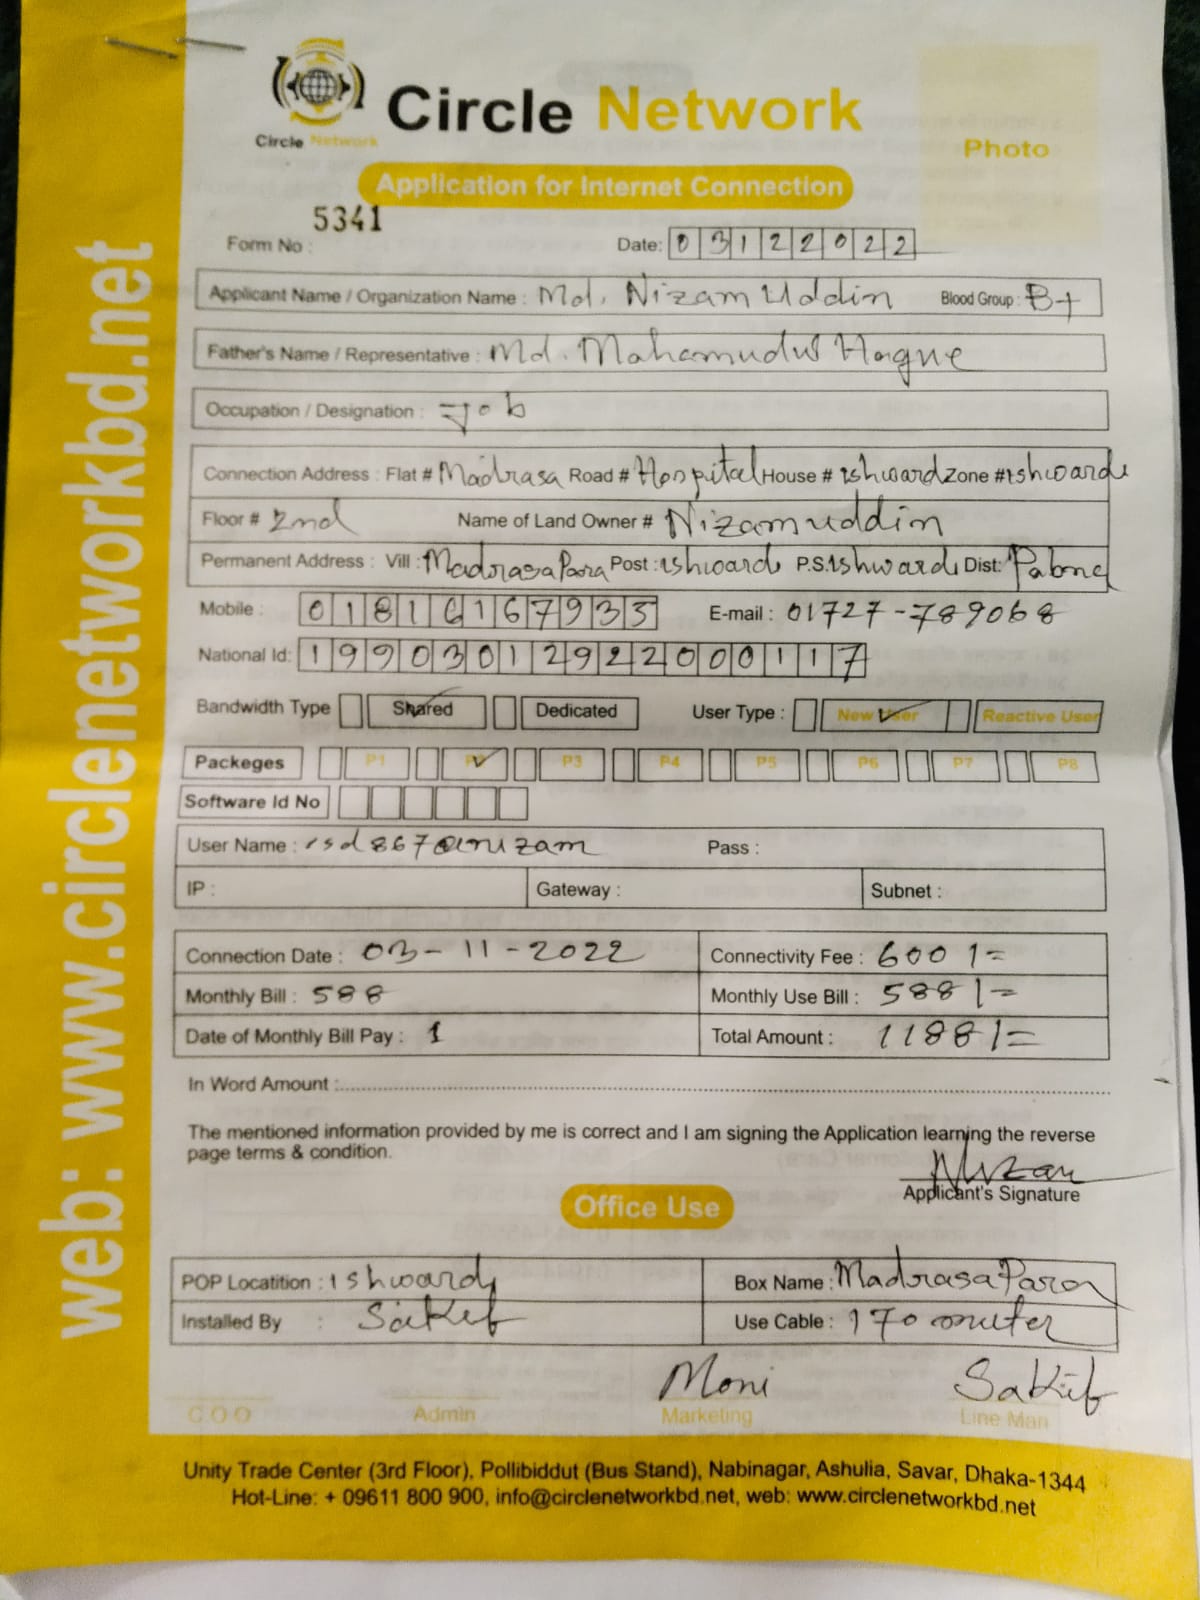 Circle Network
Circle Network
Photo
Application for Internet Connection
5341
Form No :
Date: 03122022
Applicant Name / Organization Name : Md. Nizam Uddin Blood Group : B+
Father's Name / Representative : Md. Mahamudul Hogue
Occupation / Designation : Job
Connection Address : Flat # Madrasa Road # Hospital House # Ishwardi Zone # Ishwardi
Floor # 2nd Name of Land Owner # Nizamuddin
Permanent Address : Vill : Madrasa Para Post : Ishwardi P.S. Ishwardi Dist: Pabna
Mobile : 01816167935 E-mail : 01727-789068
National Id: 19903012922000117
Bandwidth Type Shared Dedicated User Type : New User Reactive User
Packeges P1 P2 P3 P4 P5 P6 P7 P8
Software Id No
User Name : Pass :
IP : Gateway : Subnet :
Connection Date : 03-11-2022 Connectivity Fee : 600/=
Monthly Bill : 588 Monthly Use Bill : 588/=
Date of Monthly Bill Pay : 1 Total Amount : 1188/=
In Word Amount :
The mentioned information provided by me is correct and I am signing the Application learning the reverse
page terms & condition.
Nizam
Applicant's Signature
Office Use
POP Locatition : Ishwardi Box Name : Madrasa Para
Installed By : Sakib Use Cable : 170 meter
Moni Sakib
COO Admin Marketing Line Man
Unity Trade Center (3rd Floor), Pollibiddut (Bus Stand), Nabinagar, Ashulia, Savar, Dhaka-1344
Hot-Line: + 09611 800 900, info@circlenetworkbd.net, web: www.circlenetworkbd.net
web: www.circlenetworkbd.net